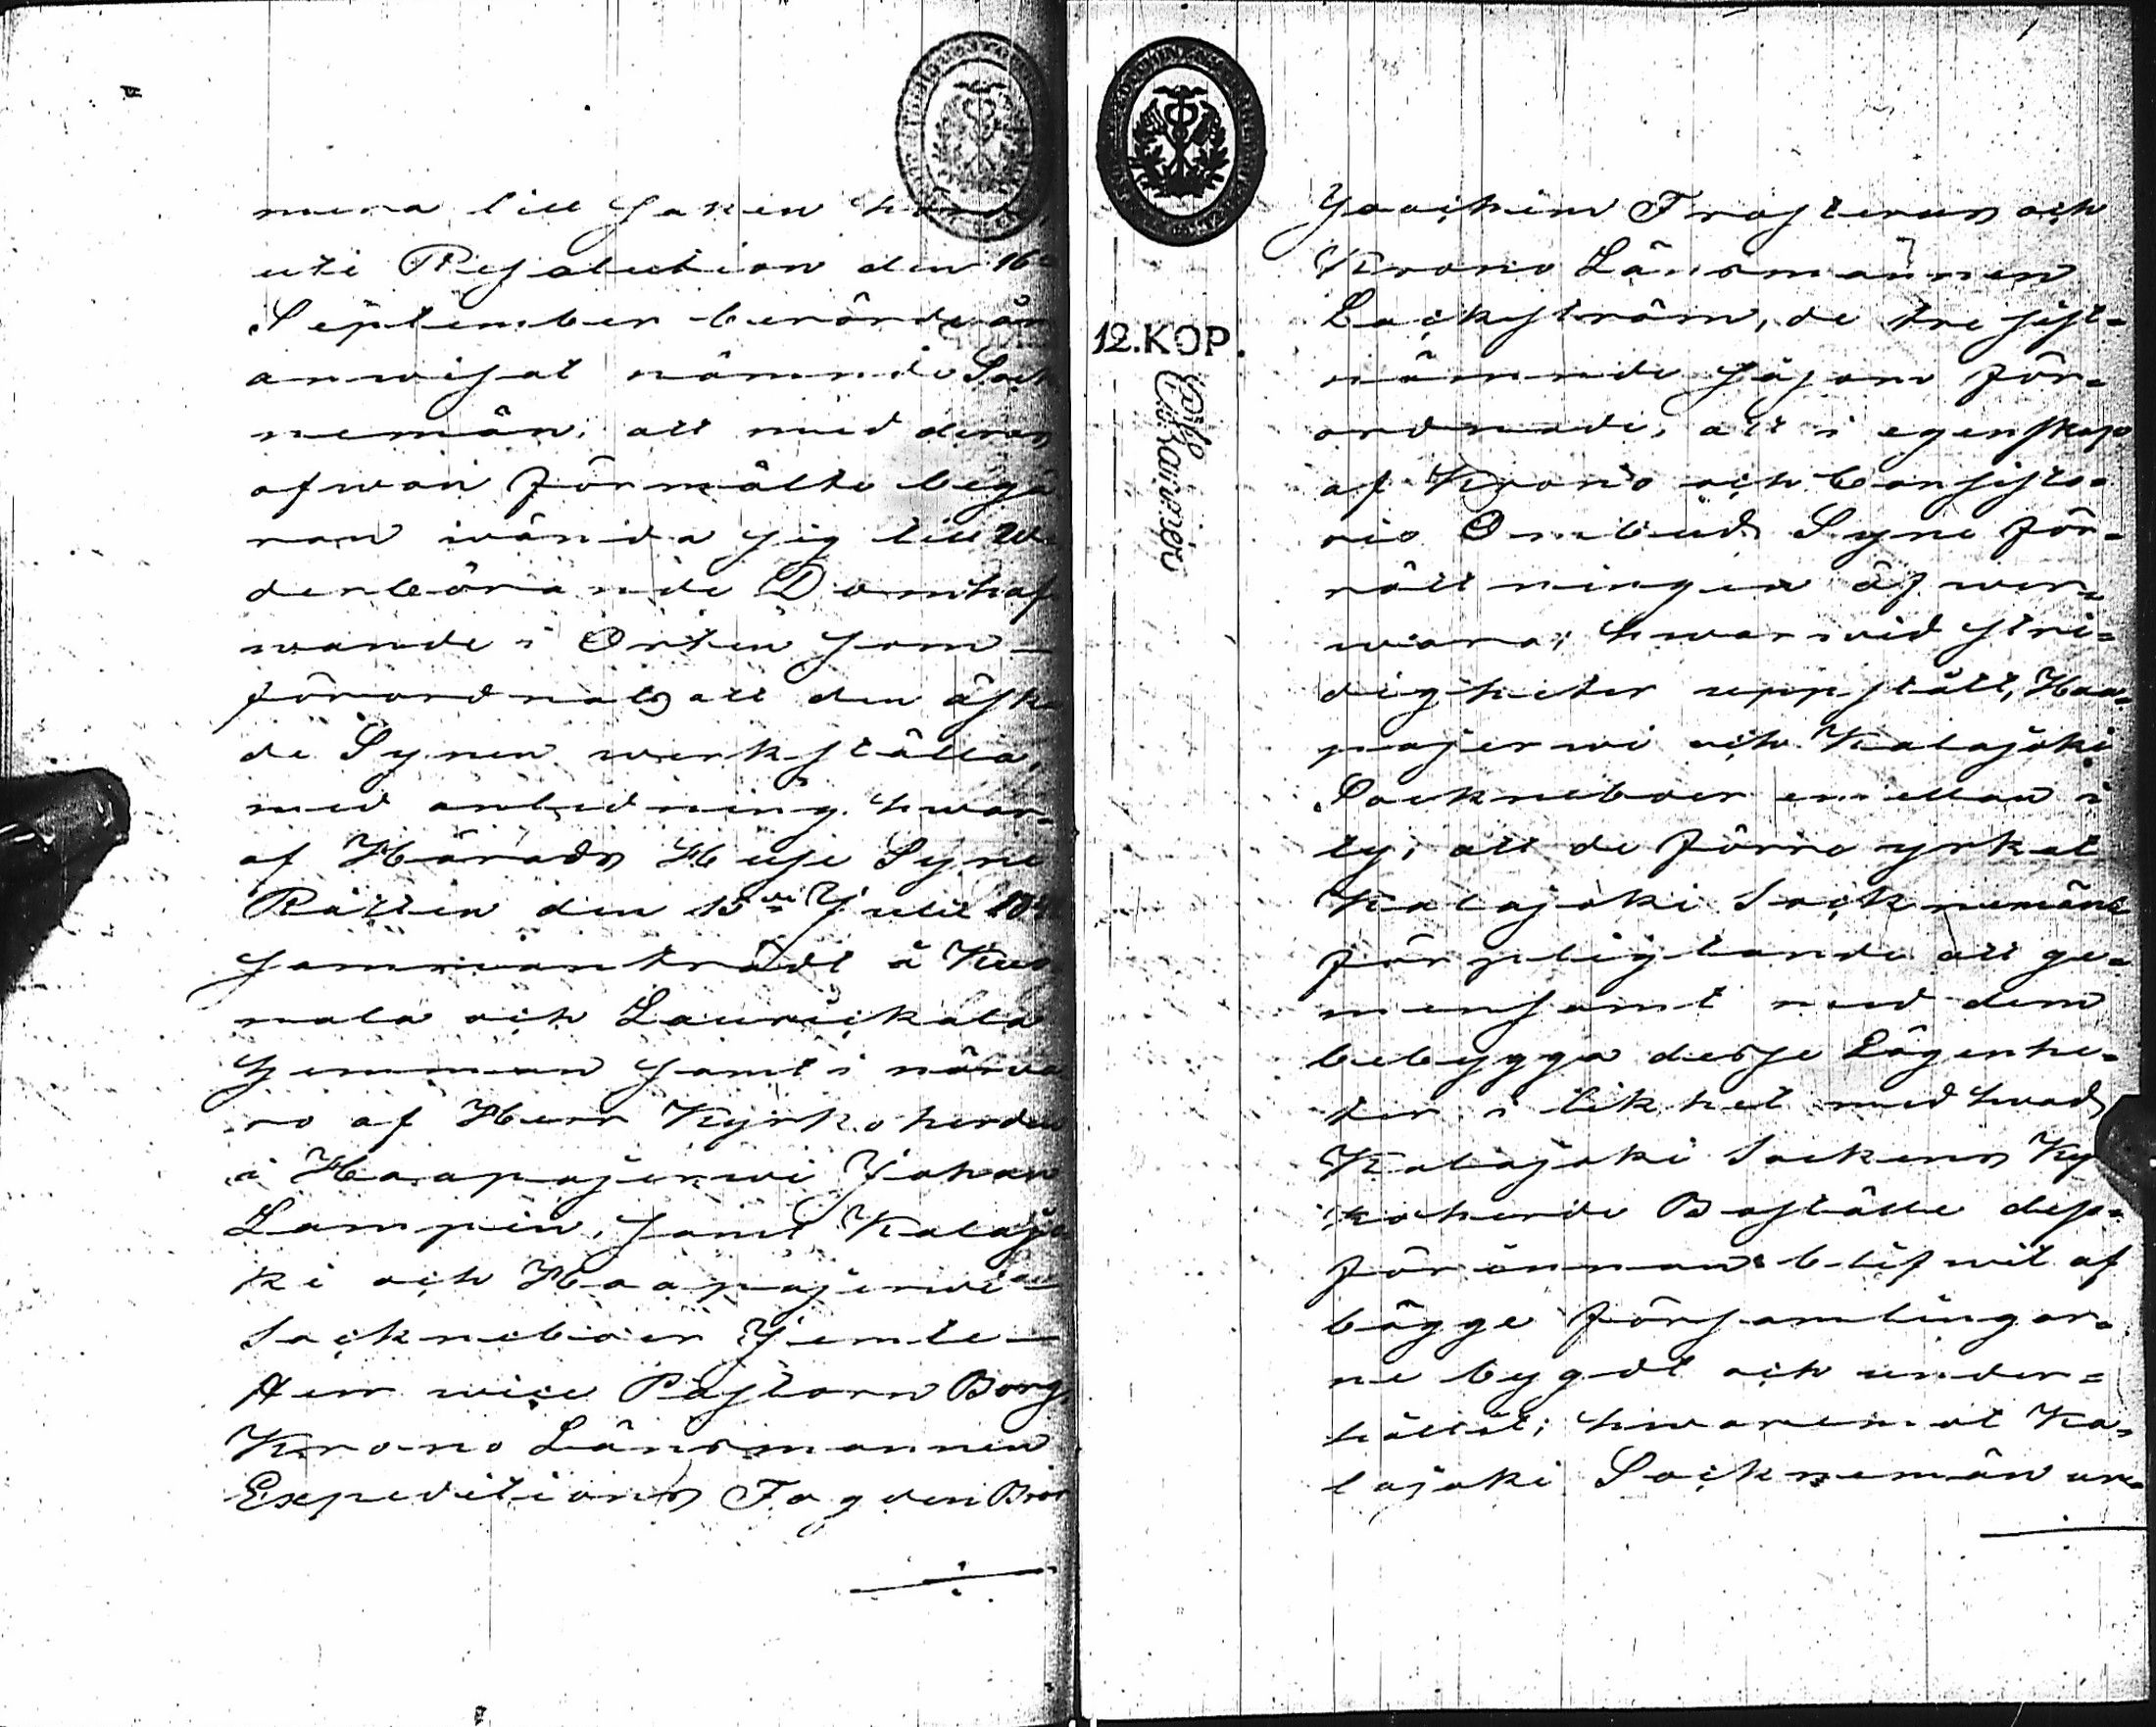 mera till saken hörer,
uti Resolution den 16de
September berörde år
anwisat nämnde Sock
nemän, att med deras
ofwan förmälte begä
ran wända sig till We
derbörande Domhaf
wande i Orten som
förordnats att den äsk
de Synen werkställa,
med anledning hwar-
af Härads Huse Syne
Rätten den 15de Julii
sammanträdt å
mala och Laurickala
Hemman samt i närwa
ro af Herr Kyrkoherden
i Haapajerwi Johan
Lampen, samt Kalajo
ki och Haapajerwi
Sockneboer Jemte
Herr wice Pastorn Borg,
Krono Länsmannen
Expeditions Fogden
12. KOP.
Joachim Frosterus och
Krono Länsmannen
Lackström, de tre sist-
nämnde såsom för-
ordnade, att i egenskap
af Krono och Consisto-
rio Ombud Syne för-
rättningen öfwer-
wara; hwarwid stri-
digheter uppstått, Haa-
pajerwi och Kalajoki
Sockneboer emellan i
ty, att de förre yrkat
Kalajoki Socknemäns
förpligtande att ge-
mensamt med dem
bebygga desse Lägenhe-
ter i likhet med hwad
Kalajoki Sockens Ky
rkoherde Boställe dess-
förinnan blifwit af
bägge församlingar-
ne bygdt och under-
hållit; hwaremot Ka-
lajoki Socknemän un-